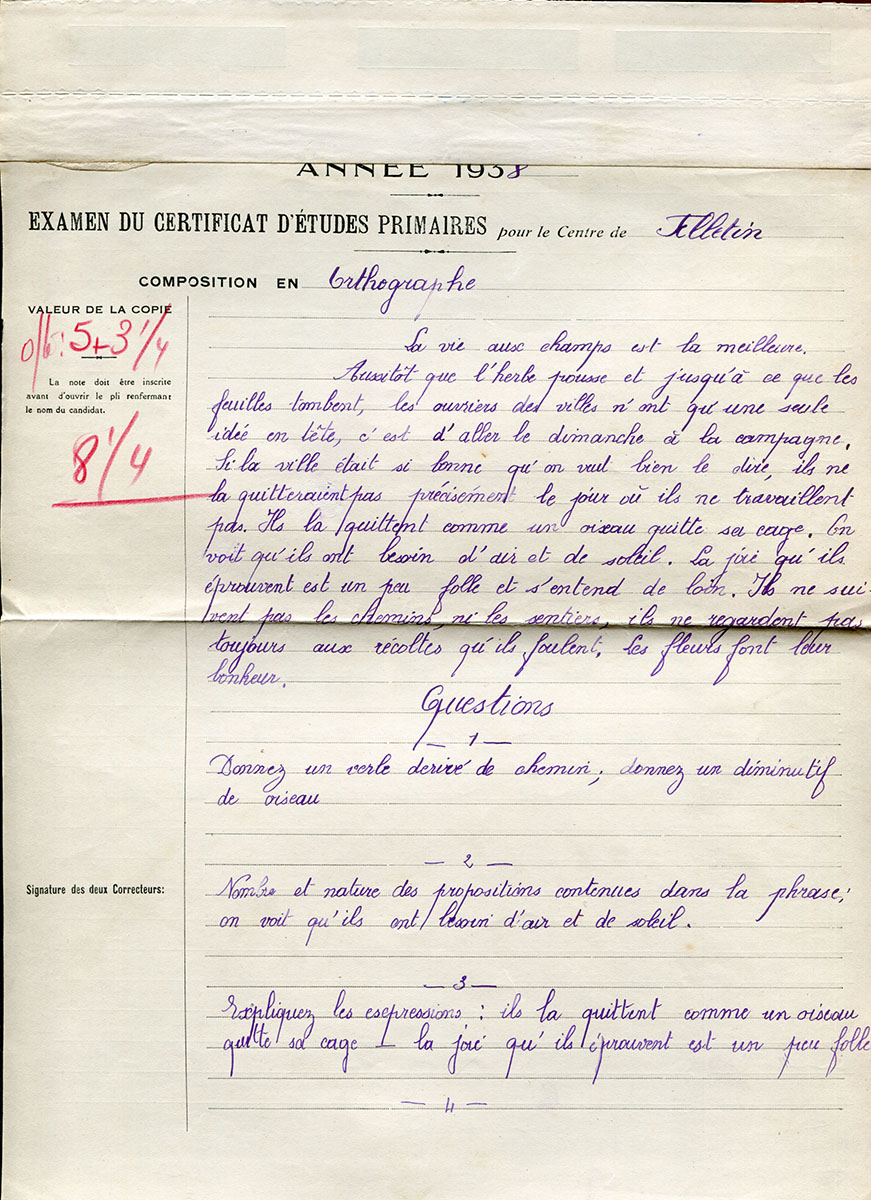 ANNÉE 1938
EXAMEN DU CERTIFICAT D'ÉTUDES PRIMAIRES pour le Centre de Felletin
COMPOSITION EN Orthographe
VALEUR DE LA COPIE
5 + 3 1/4
La note doit être inscrite
avant d'ouvrir le pli renfermant
le nom du candidat.
8 1/4
La vie aux champs est la meilleure.
Aussitôt que l'herbe pousse et jusqu'à ce que les
feuilles tombent, les ouvriers des villes n'ont qu'une seule
idée en tête, c'est d'aller le dimanche à la campagne.
Si la ville était si bonne qu'on veut bien le dire, ils ne
la quitteraient pas précisément le jour où ils ne travaillent
pas. Ils la quittent comme un oiseau quitte sa cage. On
voit qu'ils ont besoin d'air et de soleil. La joie qu'ils
éprouvent est un peu folle et s'entend de loin. Ils ne sui-
vent pas les chemins, ni les sentiers, ils ne regardent pas
toujours aux récoltes qu'ils foulent. Les fleurs font leur
bonheur.
Questions
— 1 —
Donnez un verbe derivé de chemin; donnez un diminutif
de oiseau
— 2 —
Nombre et nature des propositions contenues dans la phrase;
on voit qu'ils ont besoin d'air et de soleil.
Signature des deux Correcteurs:
— 3 —
Expliquez les expressions : ils la quittent comme un oiseau
quitte sa cage — la joie qu'ils éprouvent est un peu folle
— 4 —